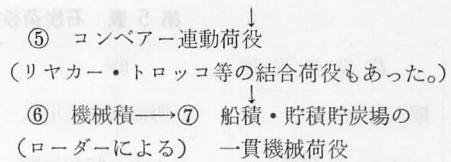 ↓
⑤ コンベアー連動荷役
(リヤカー・トロッコ等の結合荷役もあった。)
↓
⑥ 機械積─→⑦ 船積・貯積貯炭場の
(ローダーによる) 一貫機械荷役